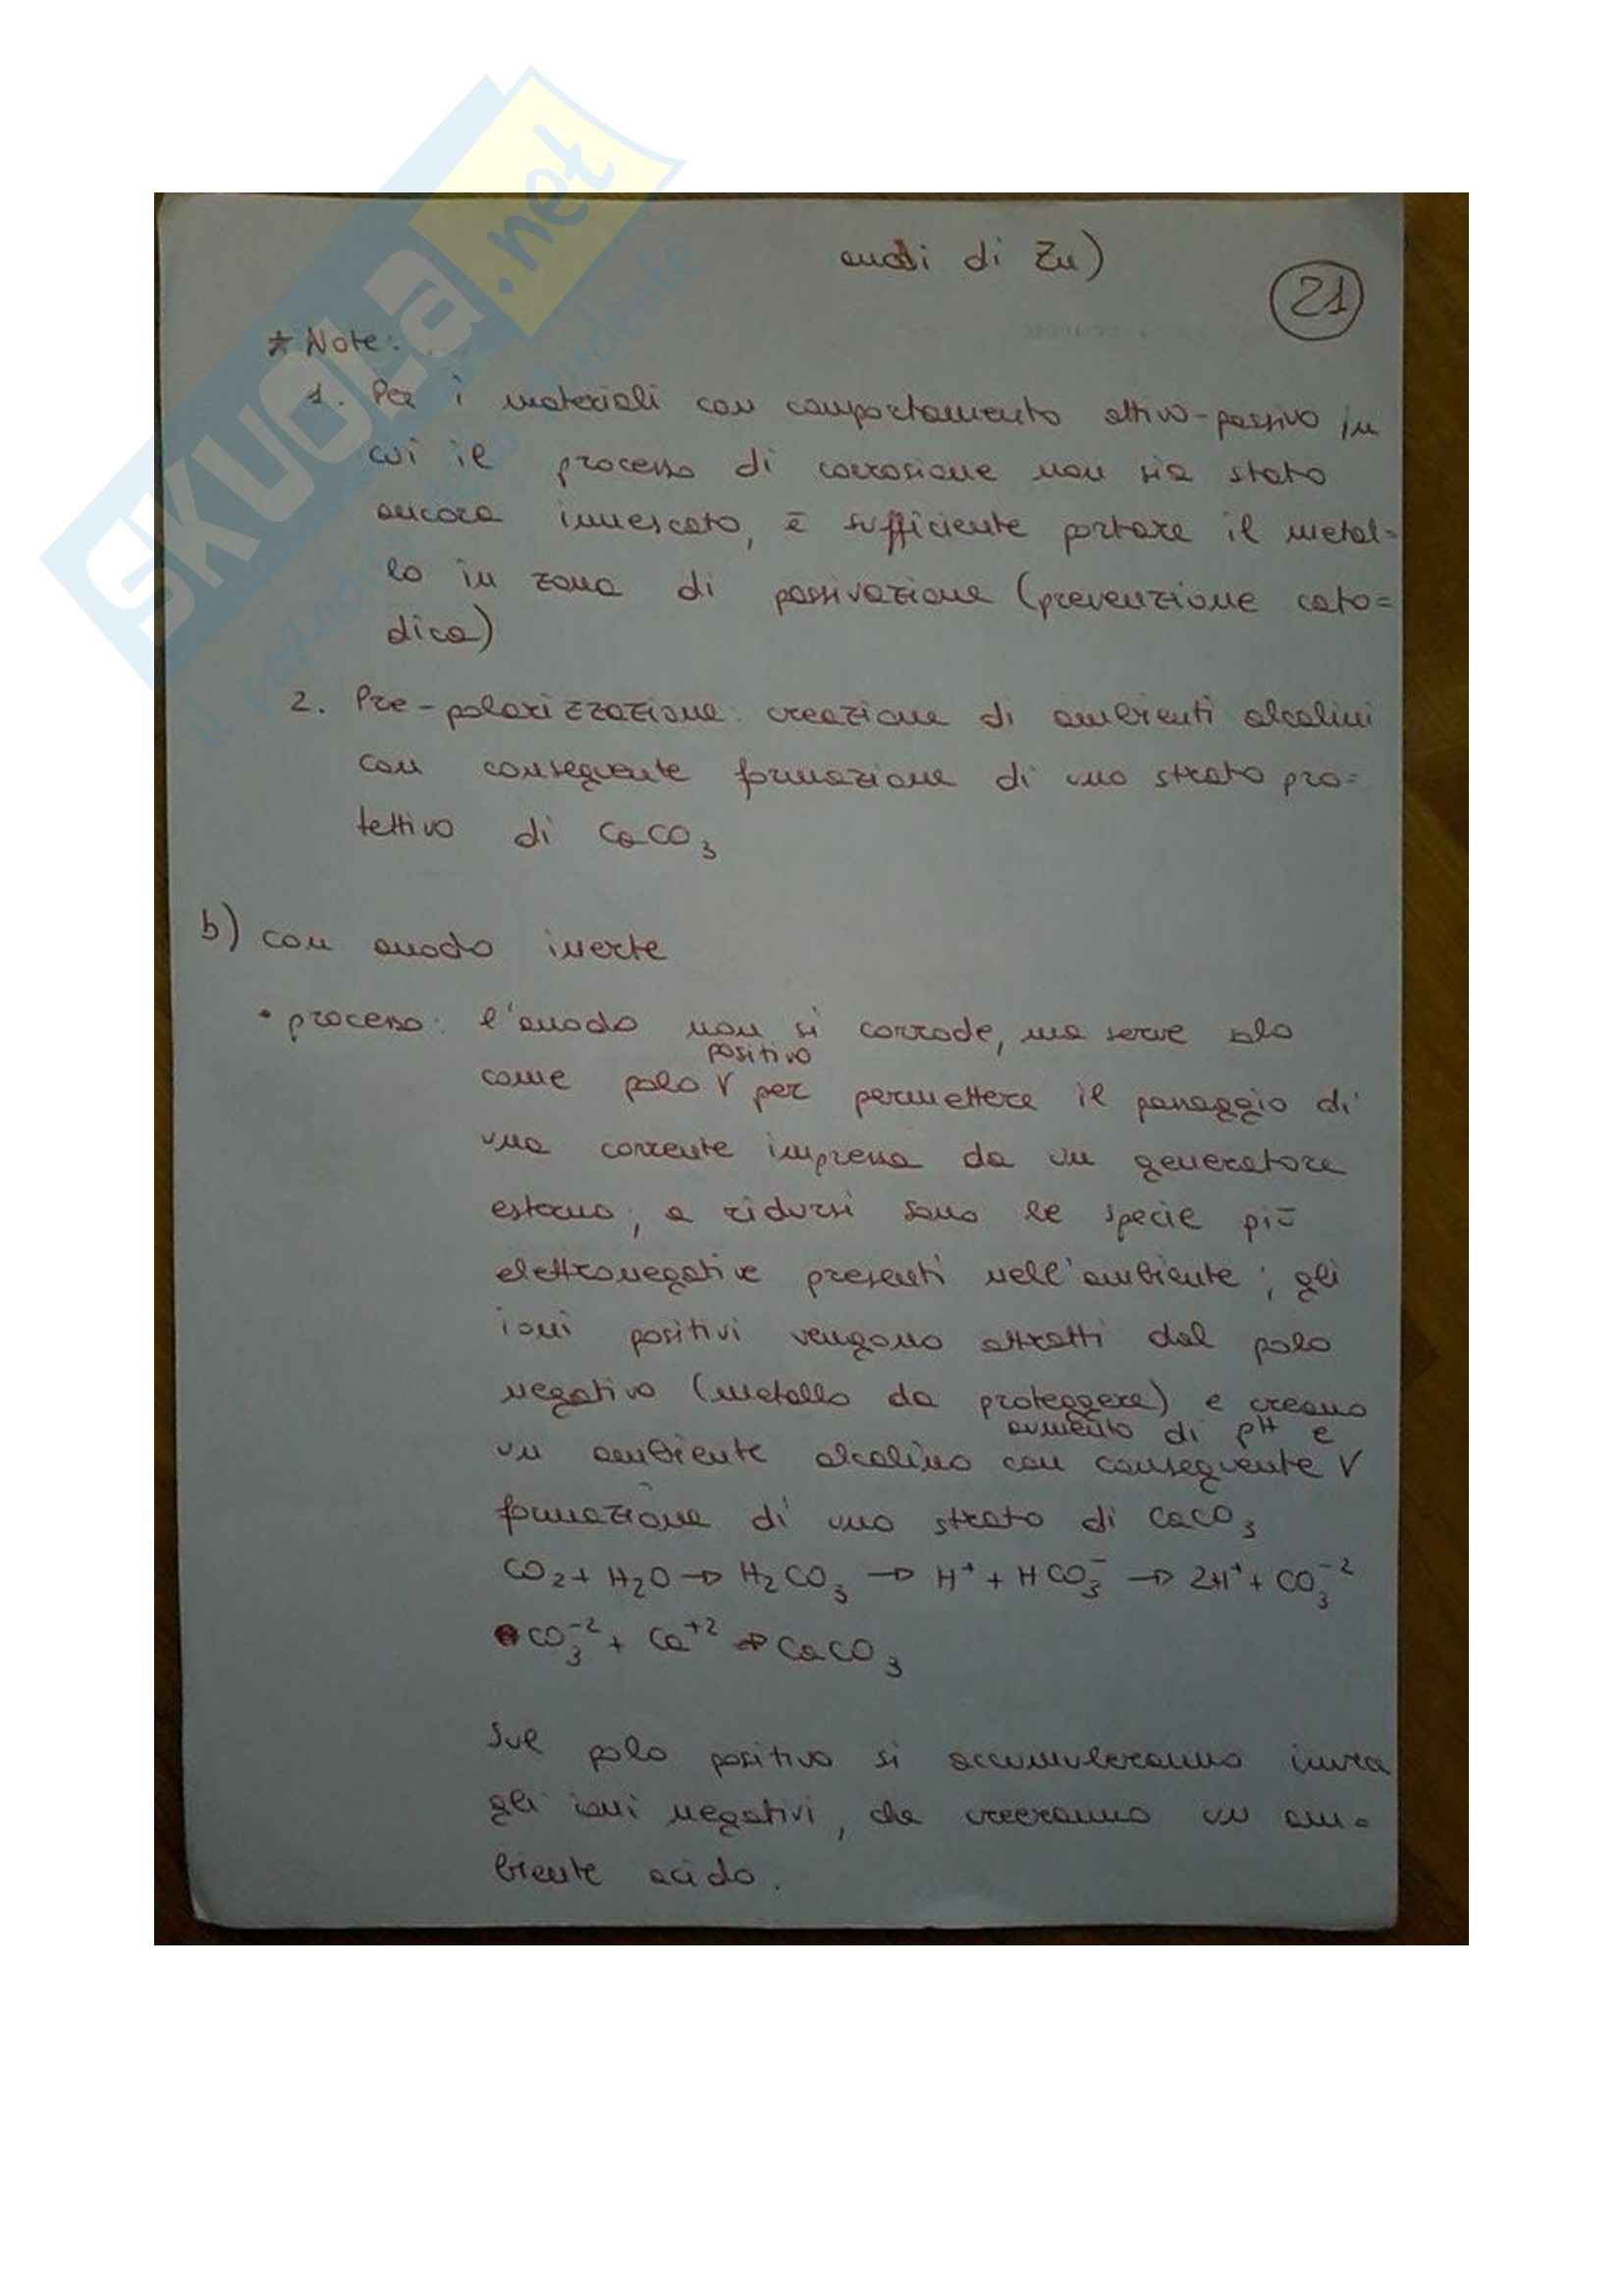 SKUOLA.net
anodi di Zn)
21
* Note:
1. Per i materiali con comportamento attivo-passivo in
cui il processo di corrosione non sia stato
ancora innescato, è sufficiente portare il metal=
lo in zona di passivazione (prevenzione cato=
dica)
2. Pre-polarizzazione: creazione di ambienti alcalini
con conseguente formazione di uno strato pro=
tettivo di CaCO3
b) con anodo inerte
• processo: l'anodo non si corrode, ma serve solo
positivo
come polo V per permettere il passaggio di
una corrente impressa da un generatore
esterno; a ridursi sono le specie più
elettronegative presenti nell'ambiente; gli
ioni positivi vengono attratti dal polo
negativo (metallo da proteggere) e creano
aumento di pH e
un ambiente alcalino con conseguente V
formazione di uno strato di CaCO3
CO2 + H2O → H2CO3 → H+ + HCO3- → 2H+ + CO3-2
CO3-2 + Ca+2 → CaCO3
Sul polo positivo si accumuleranno invece
gli ioni negativi, che creeranno un am=
biente acido.